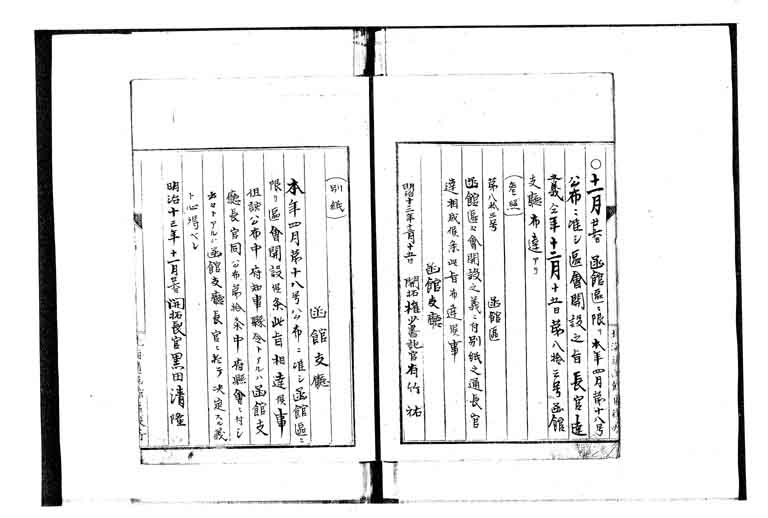 〇十一月廿五日函館區ニ限リ本年四月第十八号
公布ニ准シ區會開設之旨長官達
義仝年十二月十五日第八拾三号函館
支廳布達アリ
(參照)
第八拾三号 函館區
函館區々會開設之義ニ付別紙之通長官
達相成候条此旨布達候事
函館支廳
明治十三年十二月十五日 開拓權少書記官有竹祐
(別紙)
函館支廳
本年四月第十八号公布ニ准シ函館區ニ
限リ區會開設候条此旨相達候事
但該公布中府知事縣令トアルハ函館支
廳長官同公布第拾条中府縣會ニ付シ
云々トアルハ函館支廳長官ニ於テ決定スル義
ト心得ヘシ
明治十三年十一月廿五日 開拓長官黒田清隆